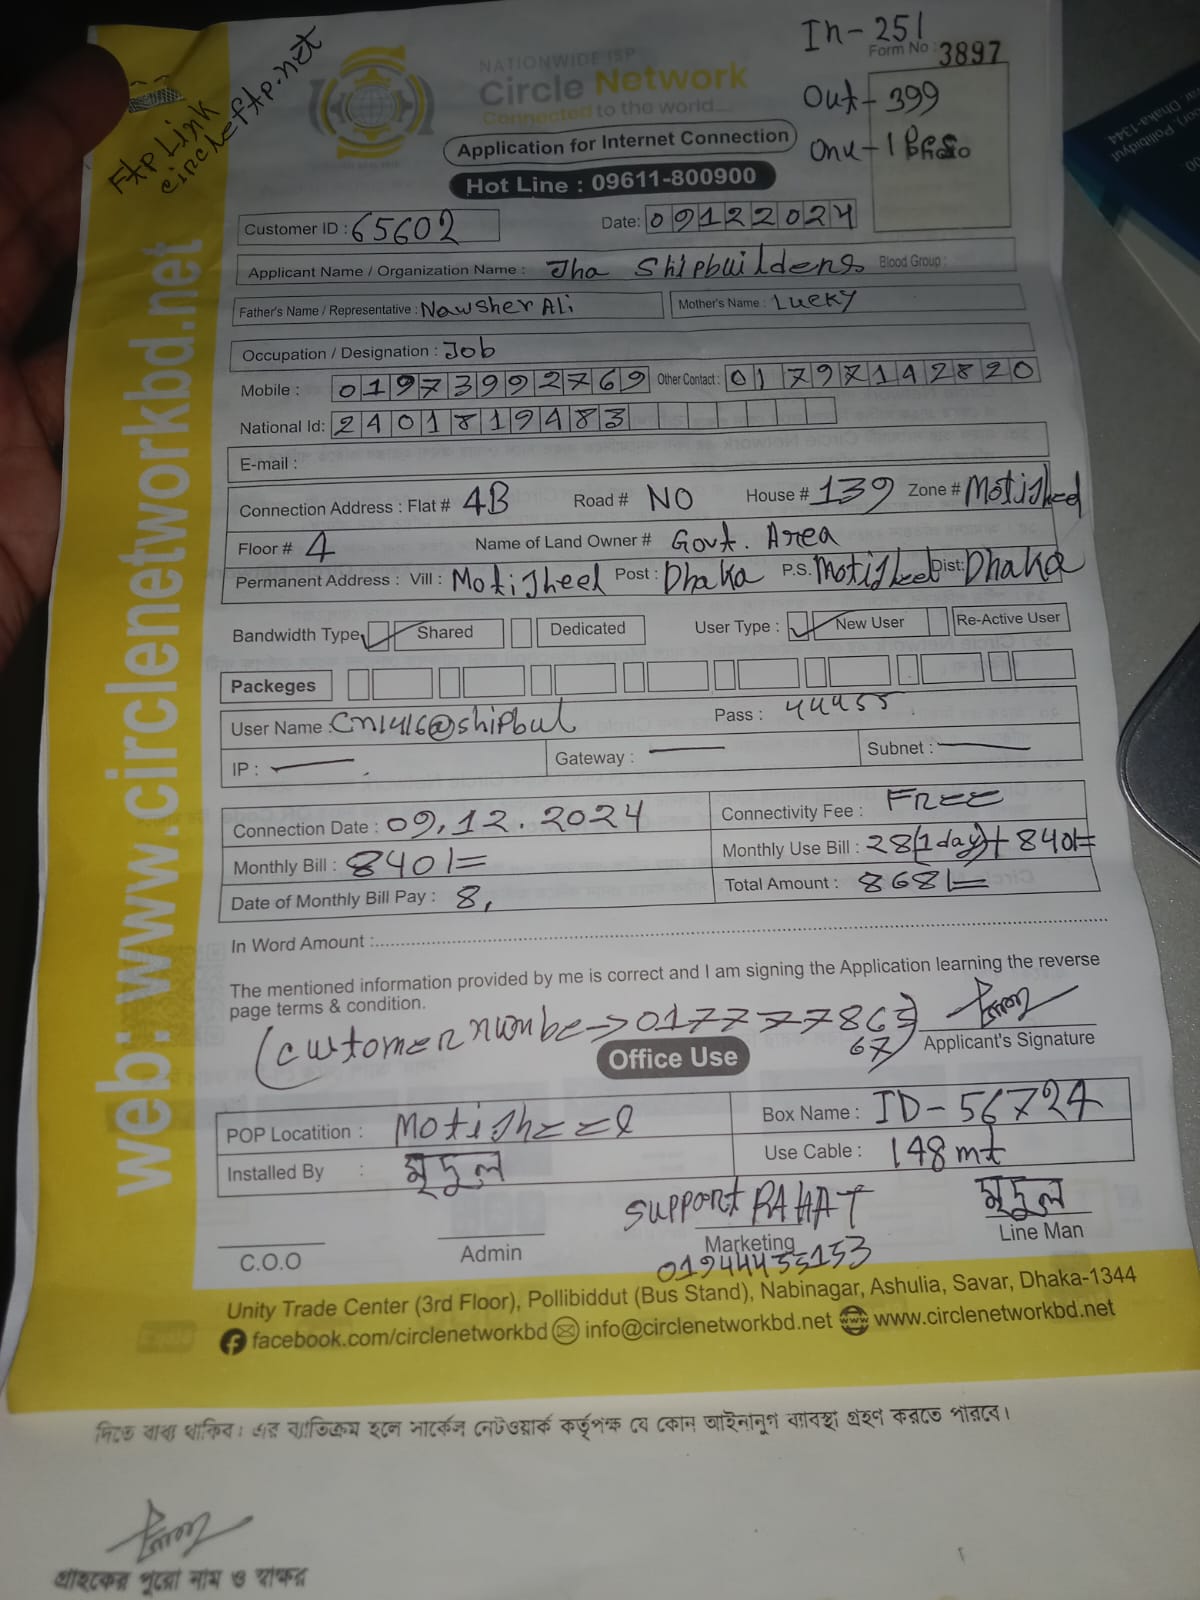 In-251
Form No : 3897
Ftp Link
circleftp.net
NATIONWIDE ISP
Circle Network
Connected to the world...
Out-399
Onu-1 Pcs
Photo
Application for Internet Connection
Hot Line : 09611-800900
Customer ID : 65602 Date: 09122024
Applicant Name / Organization Name : Jha Shipbuilders Blood Group :
Father's Name / Representative : Nawsher Ali Mother's Name : Lucky
Occupation / Designation : Job
Mobile : 01973992769 Other Contact : 01797142820
National Id: 2401819483
E-mail :
Connection Address : Flat # 4B Road # NO House # 139 Zone # Motijheel
Floor # 4 Name of Land Owner # Govt. Area
Permanent Address : Vill : Motijheel Post : Dhaka P.S. Motijheel Dist: Dhaka
Bandwidth Type Shared Dedicated User Type : New User Re-Active User
Packeges
User Name : Cn1416@shipbul Pass : 44455
IP : — Gateway : — Subnet : —
Connection Date : 09.12.2024 Connectivity Fee : FREE
Monthly Bill : 840/= Monthly Use Bill : 28(1day)+840/=
Date of Monthly Bill Pay : 8, Total Amount : 868/=
In Word Amount :
The mentioned information provided by me is correct and I am signing the Application learning the reverse
page terms & condition.
(customer numbe→0177777863
67) Applicant's Signature
Office Use
POP Locatition : Motijheel Box Name : ID-56724
Installed By : মৃদুল Use Cable : 148 mt
support RAHAT মৃদুল
C.O.O Admin Marketing Line Man
01944455153
Unity Trade Center (3rd Floor), Pollibiddut (Bus Stand), Nabinagar, Ashulia, Savar, Dhaka-1344
facebook.com/circlenetworkbd info@circlenetworkbd.net www.circlenetworkbd.net
web: www.circlenetworkbd.net
দিতে বাধ্য থাকিব। এর ব্যতিক্রম হলে সার্কেল নেটওয়ার্ক কর্তৃপক্ষ যে কোন আইনানুগ ব্যবস্থা গ্রহণ করতে পারবে।
গ্রাহকের পুরো নাম ও স্বাক্ষর